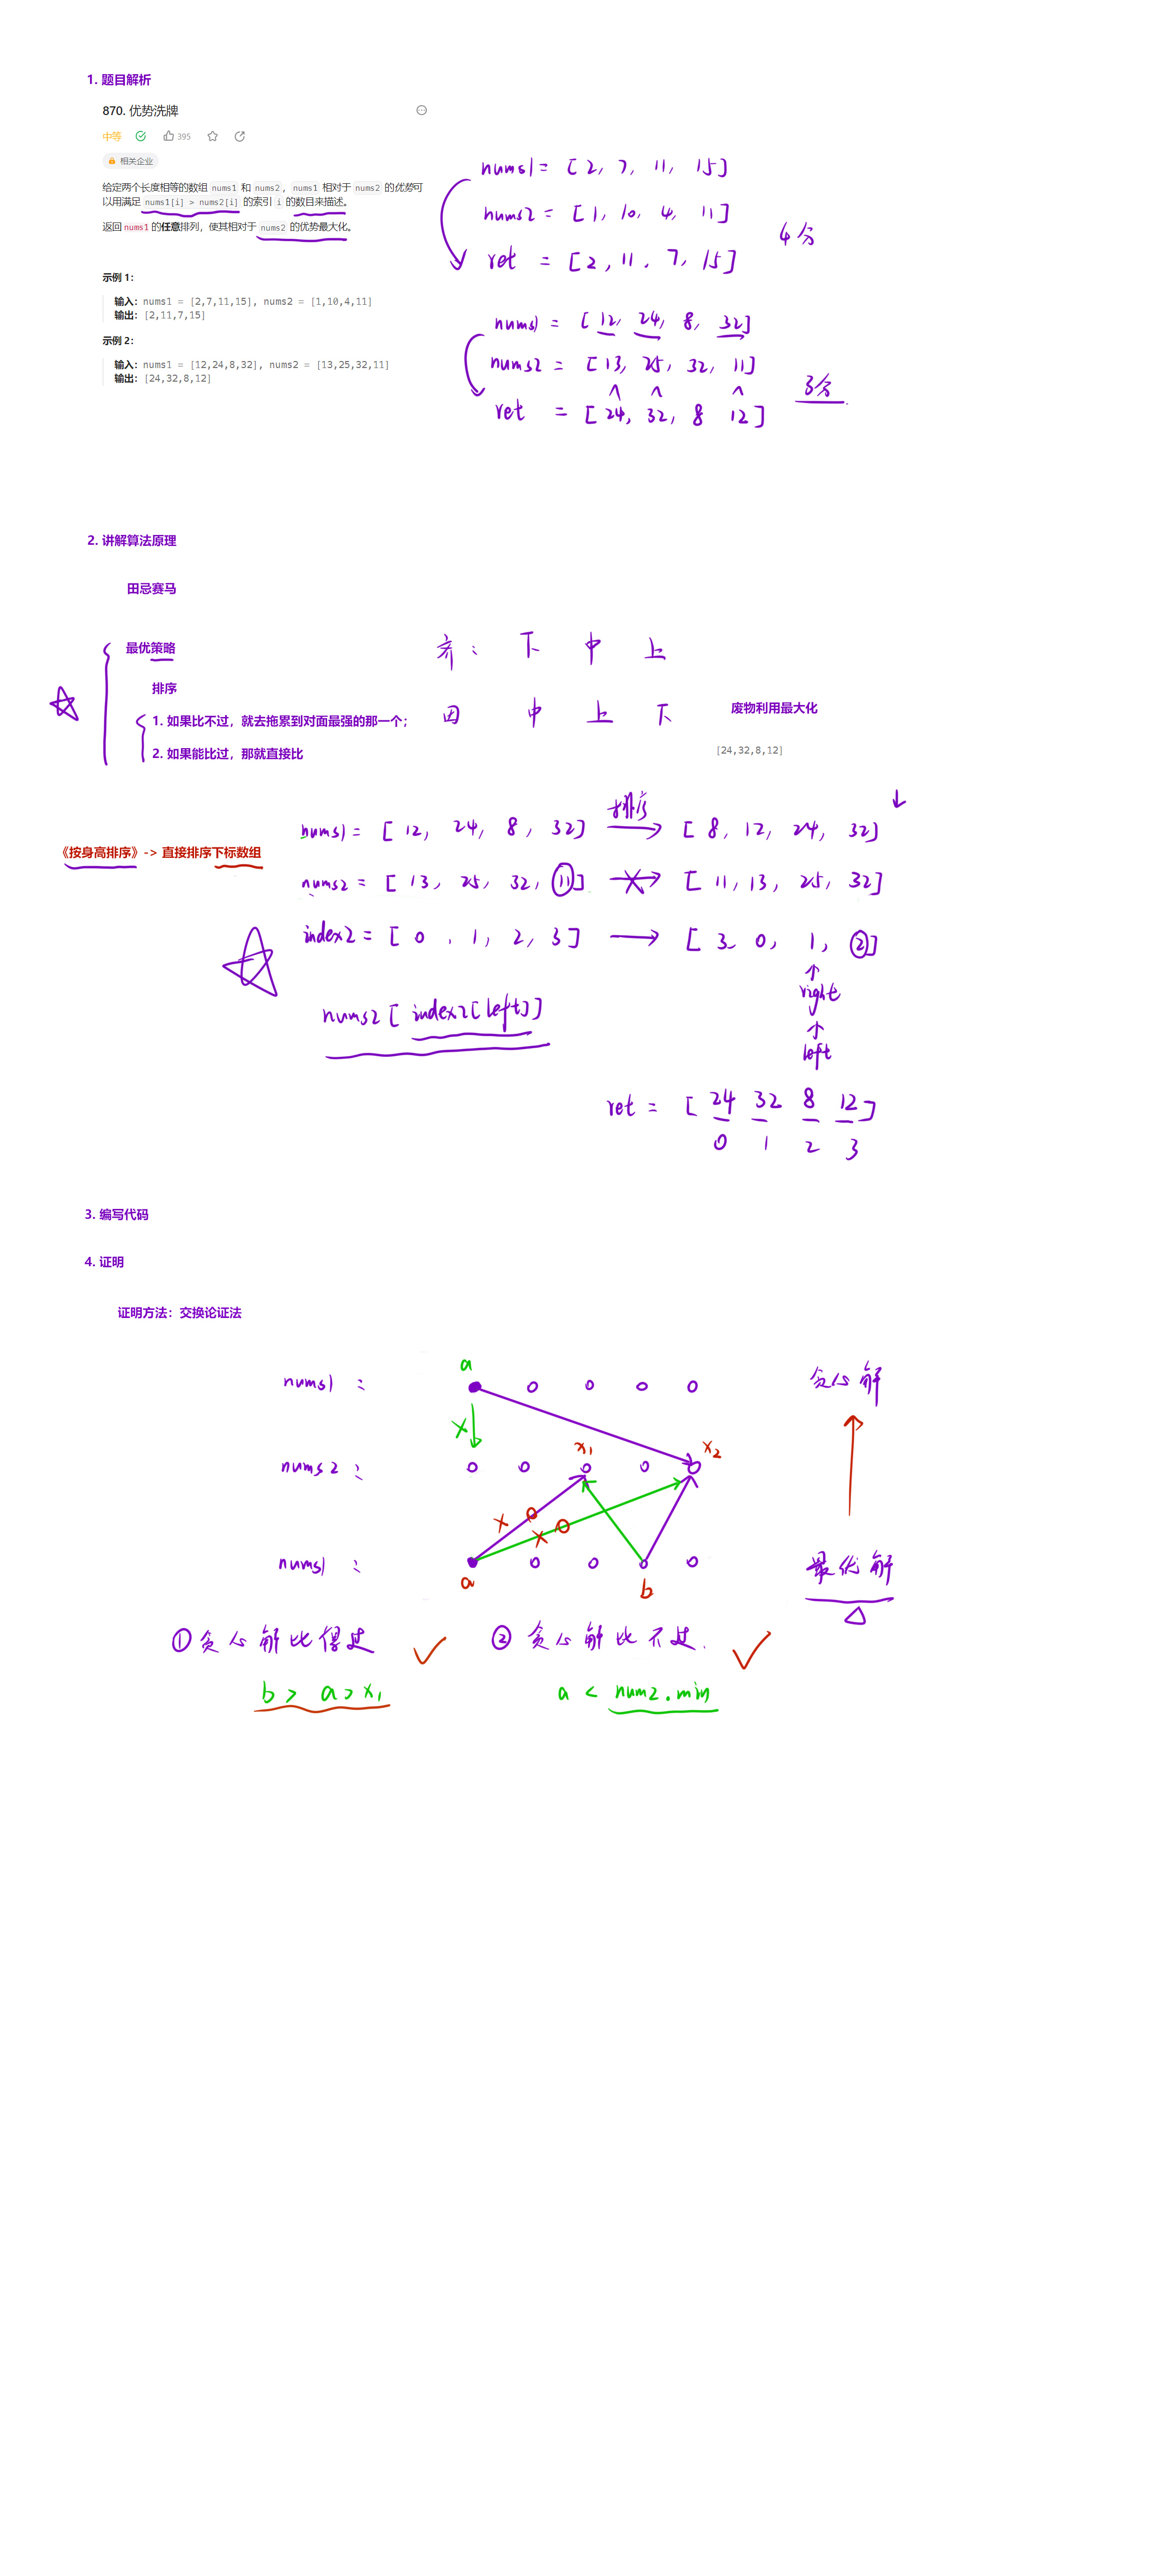 1. 题目解析
870. 优势洗牌
中等 395
相关企业
给定两个长度相等的数组 nums1 和 nums2，nums1 相对于 nums2 的优势可
以用满足 nums1[i] > nums2[i] 的索引 i 的数目来描述。
返回 nums1 的任意排列，使其相对于 nums2 的优势最大化。
示例 1：
输入：nums1 = [2,7,11,15], nums2 = [1,10,4,11]
输出：[2,11,7,15]
示例 2：
输入：nums1 = [12,24,8,32], nums2 = [13,25,32,11]
输出：[24,32,8,12]
nums1 = [2, 7, 11, 15]
nums2 = [1, 10, 4, 11]
ret = [2, 11, 7, 15]
4分
nums1 = [12, 24, 8, 32]
nums2 = [13, 25, 32, 11]
^ ^ ^
ret = [24, 32, 8 12]
3分
2. 讲解算法原理
田忌赛马
最优策略
排序
1. 如果比不过，就去拖累到对面最强的那一个；
2. 如果能比过，那就直接比
齐： 下 中 上
田 中 上 下
废物利用最大化
[24,32,8,12]
nums1 = [12, 24, 8, 32] 排序 [8, 12, 24, 32]
《按身高排序》-> 直接排序下标数组
nums2 = [13, 25, 32, 11] [11, 13, 25, 32]
index2 = [0, 1, 2, 3] [3 0, 1, 2]
right
nums2[index2[left]]
left
ret = [24 32 8 12]
0 1 2 3
3. 编写代码
4. 证明
证明方法：交换论证法
a
nums1：
贪心解
x
x1 x2
nums2：
x x
nums1：
最优解
a b
① 贪心解比得过
② 贪心解比不过.
b > a > x1
a < num2.min